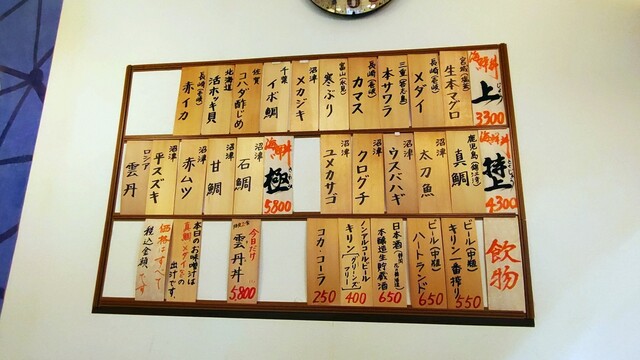 海鮮丼
上
3300
宮城(塩釜)
生本マグロ
長崎(壱岐)
メダイ
三重(答志島)
本サワラ
長崎(壱岐)
カマス
富山(氷見)
寒ぶり
沼津
メカジキ
千葉
イボ鯛
佐賀
コハダ酢じめ
北海道
活ホッキ貝
長崎(壱岐)
赤イカ
海鮮丼
特上
4300
鹿児島(錦江湾)
真鯛
沼津
太刀魚
沼津
ウスバハギ
沼津
クログチ
沼津
ユメカサゴ
海鮮丼
極
5800
沼津
石鯛
沼津
甘鯛
沼津
赤ムツ
沼津
平スズキ
ロシア
雲丹
飲物
ビール(中瓶)
キリン一番搾り
550
ビール(中瓶)
ハートランド
650
日本酒
本醸造生貯蔵酒
650
ノンアルコールビール
キリン[グリーンズフリー]
400
コカ・コーラ
250
今日だけ
雲丹丼
5,800
本日のお味噌汁は
真鯛、メダイの
出汁です。
価格はすべて
税込金額です